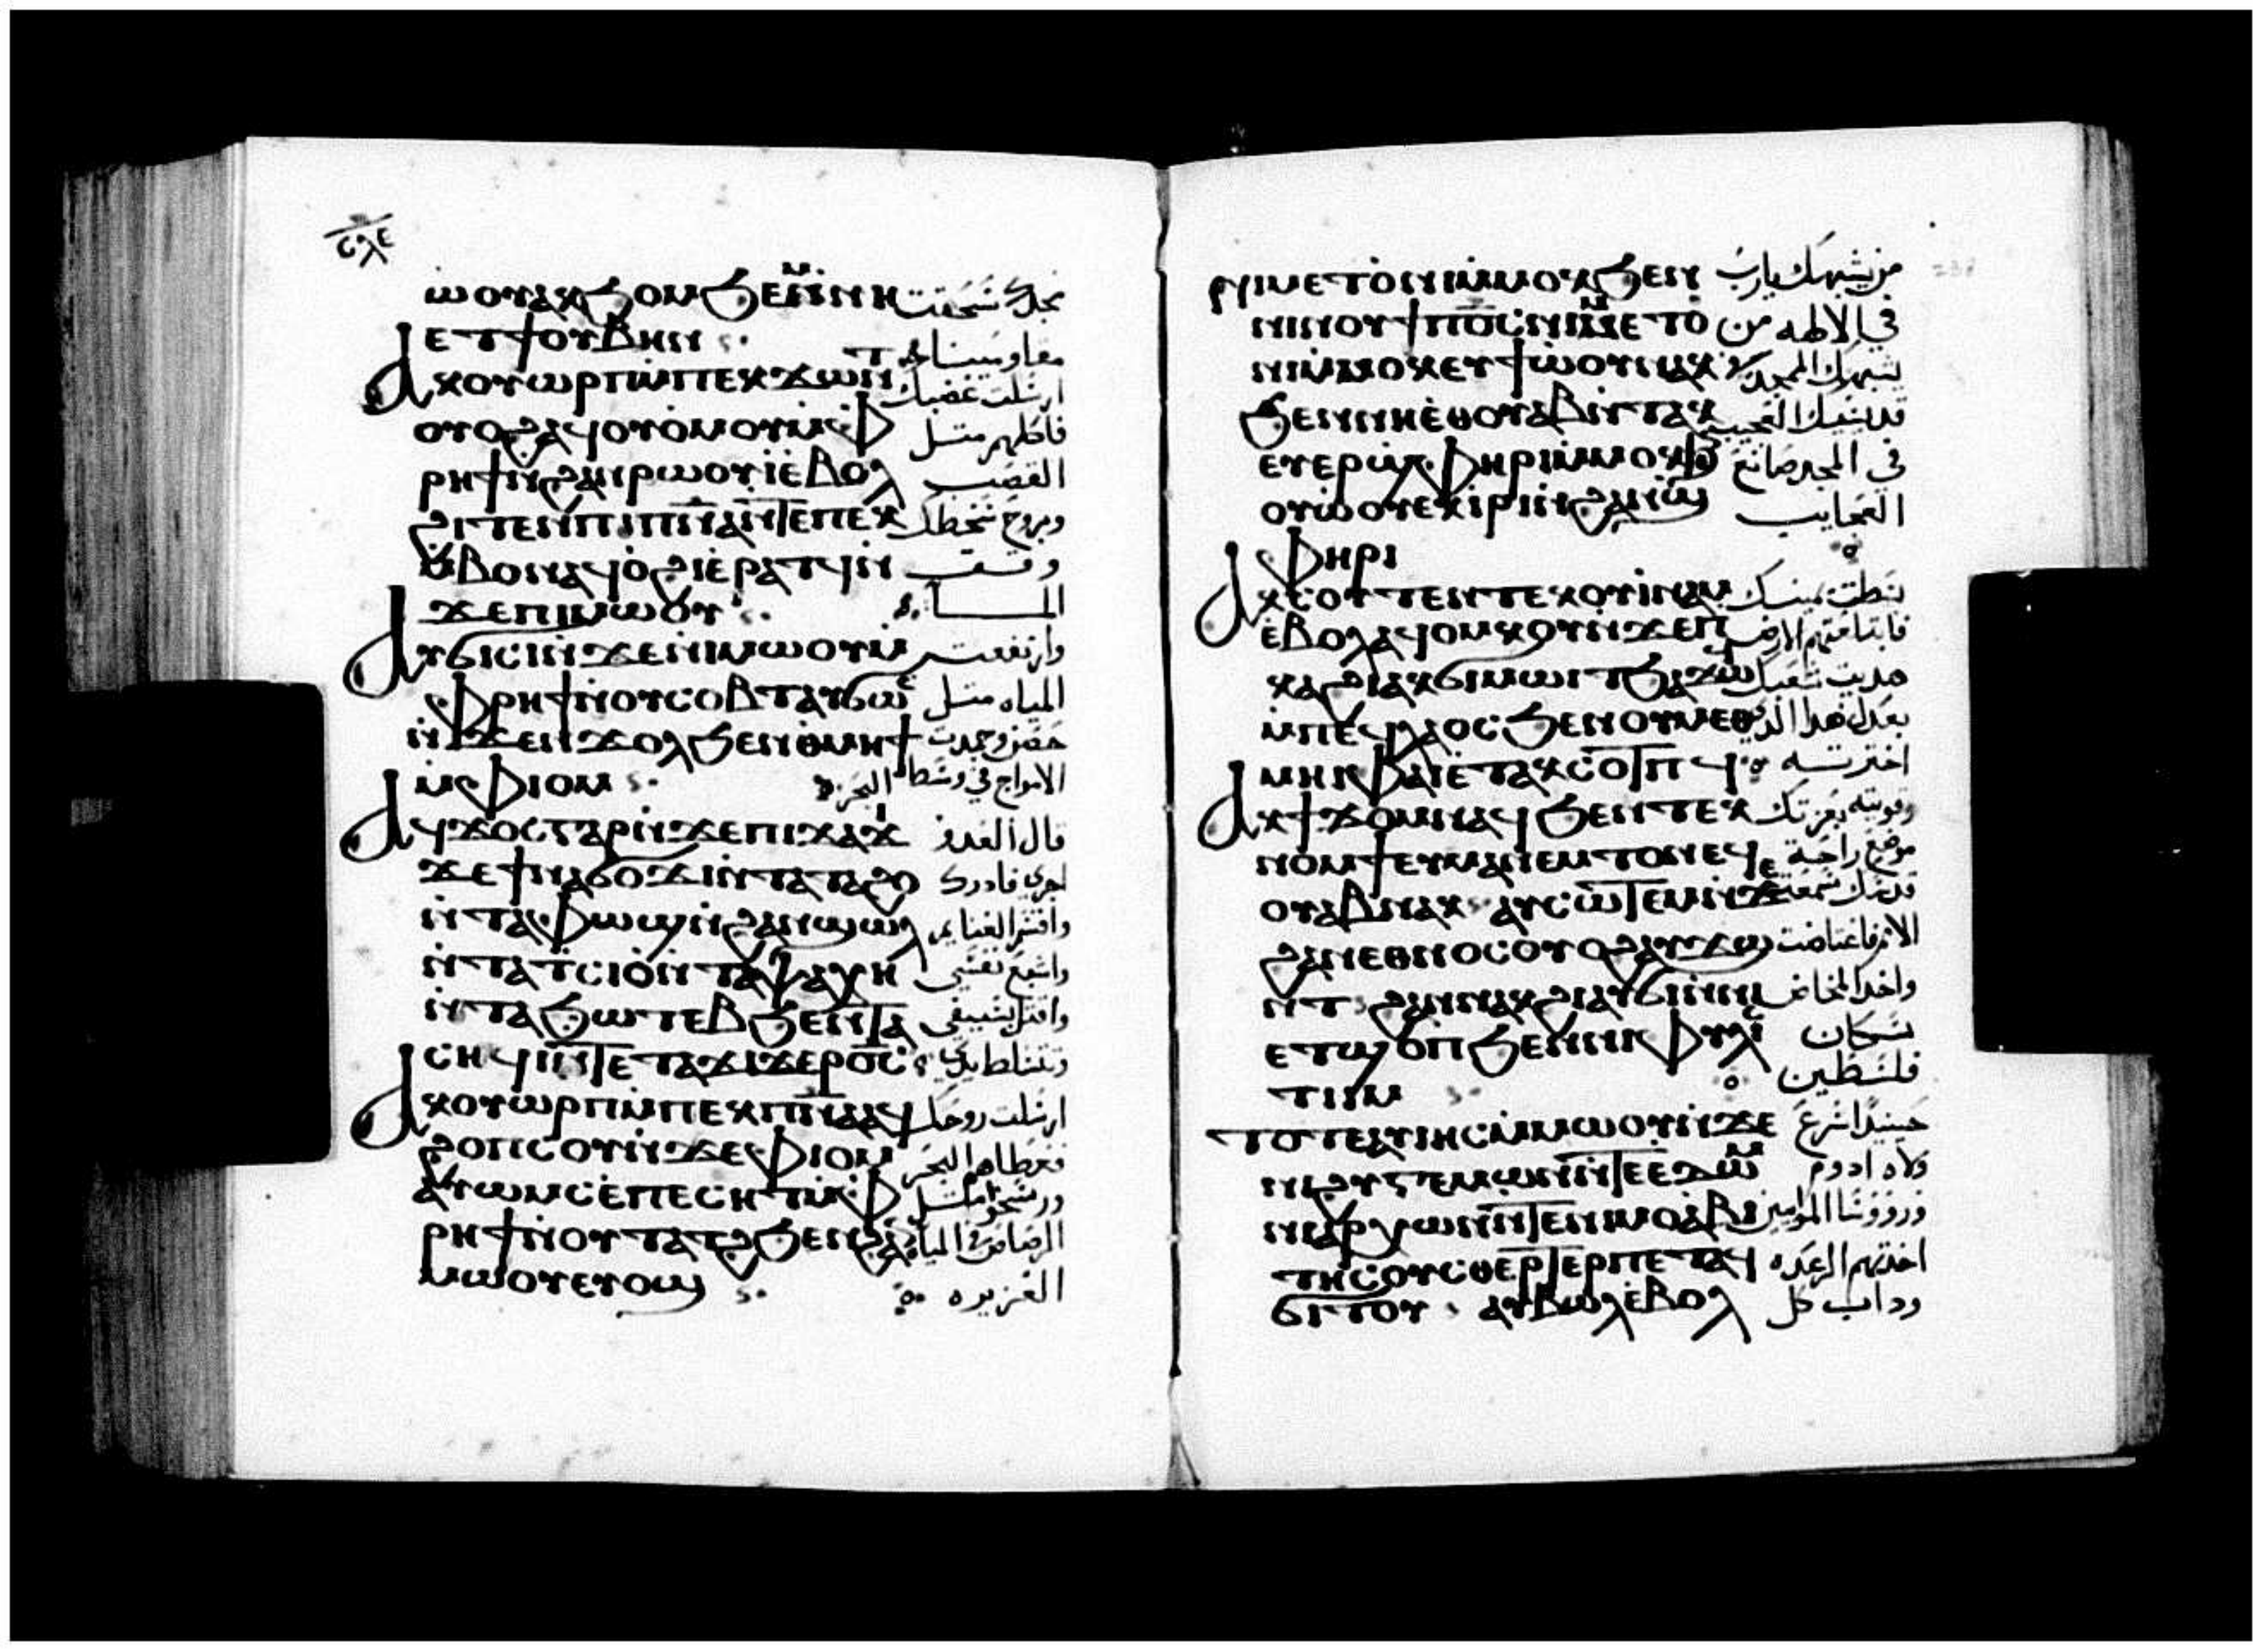 ⲥⲗⲉ
ⲱⲟⲩⲁⲕϧⲟⲙϧⲉⲙⲛⲛⲏ
ⲉⲧϯⲟⲩⲃⲏⲛ
ⲁⲕⲟⲩⲱⲣⲡⲙⲡⲉⲕϫⲱⲛⲧ ارسلت غضبك
ⲟⲩⲟϩⲁϥⲟⲩⲟⲙⲟⲩⲙⲫ فاكلهم مثل
ⲣⲏϯⲛϩⲁⲛⲣⲱⲟⲩⲓ̀ⲉⲃⲟⲗ القصب
ϩⲓⲧⲉⲛⲡⲓⲡⲛⲁⲛⲧⲉⲡⲉⲕ وبروح سخطك
ⲙⲃⲟⲛⲁϥⲟ̀ϩⲓⲉ̀ⲣⲁⲧϥⲛ وقف
ϫⲉⲡⲓⲙⲱⲟⲩ المـا
ⲁⲩϭⲓⲥⲓⲛϫⲉⲛⲓⲙⲱⲟⲩⲙ وارتفعت
ⲫⲣⲏϯⲛⲟⲩⲥⲟⲃⲧⲁⲩϭⲱⲥ المياه مثل
ⲛϫⲉⲛϫⲟⲗϧⲉⲛⲑⲙⲏϯ
ⲙⲫⲓⲟⲙ الامواج في وسط البحر
ⲁϥϫⲟⲥⲅⲁⲣⲛϫⲉⲡⲓϫⲁϫⲓ قال العدو
ϫⲉϯⲛⲁϭⲟϫⲓⲛⲧⲁⲧⲁϩⲟ اجري فادرك
ⲛⲧⲁⲫⲱϣⲛϩⲁⲛϣⲱⲗ واقسم الغنايم
ⲛⲧⲁⲧⲥⲓⲟⲛⲧⲁⲯⲩⲭⲏ واشبع نفسي
ⲛⲧⲁϧⲱⲧⲉⲃϧⲉⲛⲧⲁ واقتل بسيفي
ⲥⲏϥⲓⲛⲧⲉⲧⲁϫⲓϫⲉⲣⲟ̅ⲥ̅ وتتسلط يدي
ⲁⲕⲟⲩⲱⲣⲡⲙⲡⲉⲕⲡⲛⲁⲁϥ ارسلت روحك
ϩⲟⲡⲥⲟⲩⲛϫⲉⲫⲓⲟⲙ فغطاهم البحر
ⲁⲩⲱⲙⲥⲉ̀ⲡⲉⲥⲏⲧⲙⲫ
ⲣⲏϯⲛⲟⲩⲧⲁⲧϩϧⲉⲛϩⲁⲛ الرصاص في المياه
ⲙⲱⲟⲩⲉⲩⲟϣ الغزيره
ⲛⲓⲙⲉⲧⲟ̀ⲛⲓⲙⲙⲟⲕϧⲉⲛ من يشبهك يارب
ⲛⲓⲛⲟⲩϯⲡⲟ̅ⲥ̅ⲛⲓⲙⲉⲧⲟ̀ في الالهه من
ⲛⲓⲙⲙⲟⲕⲉⲩϯⲱ̀ⲟⲩⲛⲁⲕ يشبهك
ϧⲉⲛⲛⲏⲉ̀ⲑⲟⲩⲁⲃⲛⲧⲁⲕ
ⲉⲩⲉⲣϣⲫⲏⲣⲓⲙⲙⲟⲕϧⲉⲛ في المجد صانع
ⲟⲩⲱ̀ⲟⲩⲉⲕⲓ̀ⲣⲓⲛϩⲁⲛϣ العجايب
ⲫⲏⲣⲓ
ⲁⲕⲥⲟⲩⲧⲉⲛⲧⲉⲕⲟⲩⲓⲛⲁⲙ بسطت يمينك
ⲉ̀ⲃⲟⲗⲁϥⲟⲙⲕⲟⲩⲛϫⲉⲡ فابتلعتهم الارض
ⲕⲁϩⲓⲁⲕϭⲓⲙⲱⲓⲧϧⲁϫⲱϥ هديت شعبك
ⲙⲡⲉϥⲗⲁⲟⲥϧⲉⲛⲟⲩⲙⲉⲑ بعدل هدا الدي
ⲙⲏⲓⲫⲁⲓⲉ̀ⲧⲁⲕⲥⲟⲧⲡϥ اخترتـه
ⲁⲕϯϫⲟⲙⲛⲁϥϧⲉⲛⲧⲉⲕ وقويته بعزتك
ⲛⲟⲙϯⲉⲩⲙⲁⲛⲉⲙⲧⲟⲛⲉϥⲉ موضع راحة
ⲟⲩⲁⲃⲛⲁⲕ ⲁⲩⲥⲱⲧⲉⲙⲛϫⲉ
ϩⲁⲛⲉⲑⲛⲟⲥⲟⲩⲟϩⲁⲩϫⲱ
ⲛⲧϩⲁⲛⲛⲁⲕϩⲓⲁⲩϭⲓⲛⲛⲏ واخد المخاض
ⲉⲧϣⲟⲡϧⲉⲛⲛⲓⲫⲩⲗⲓⲥ سكان
ⲧⲓⲓⲙ فلسطين
ⲧⲟⲧⲉⲁⲩⲓⲏⲥⲙⲙⲱⲟⲩⲛϫⲉ حينيدا اسرع
ⲛⲓϩⲩⲅⲉⲙⲱⲛⲛⲧⲉⲉ̀ⲇⲱⲙ ولاه ادوم
ⲛⲓⲁⲣⲭⲱⲛⲛⲧⲉⲛⲓⲙⲱⲁⲃⲓ
ⲧⲏⲥⲟⲩⲥⲑⲉⲣⲧⲉⲣⲡⲉⲧⲁϥ اخدتهم الرعده
ϭⲓⲧⲟⲩ ⲁⲩⲃⲱⲗⲉ̀ⲃⲟⲗ وداب كل